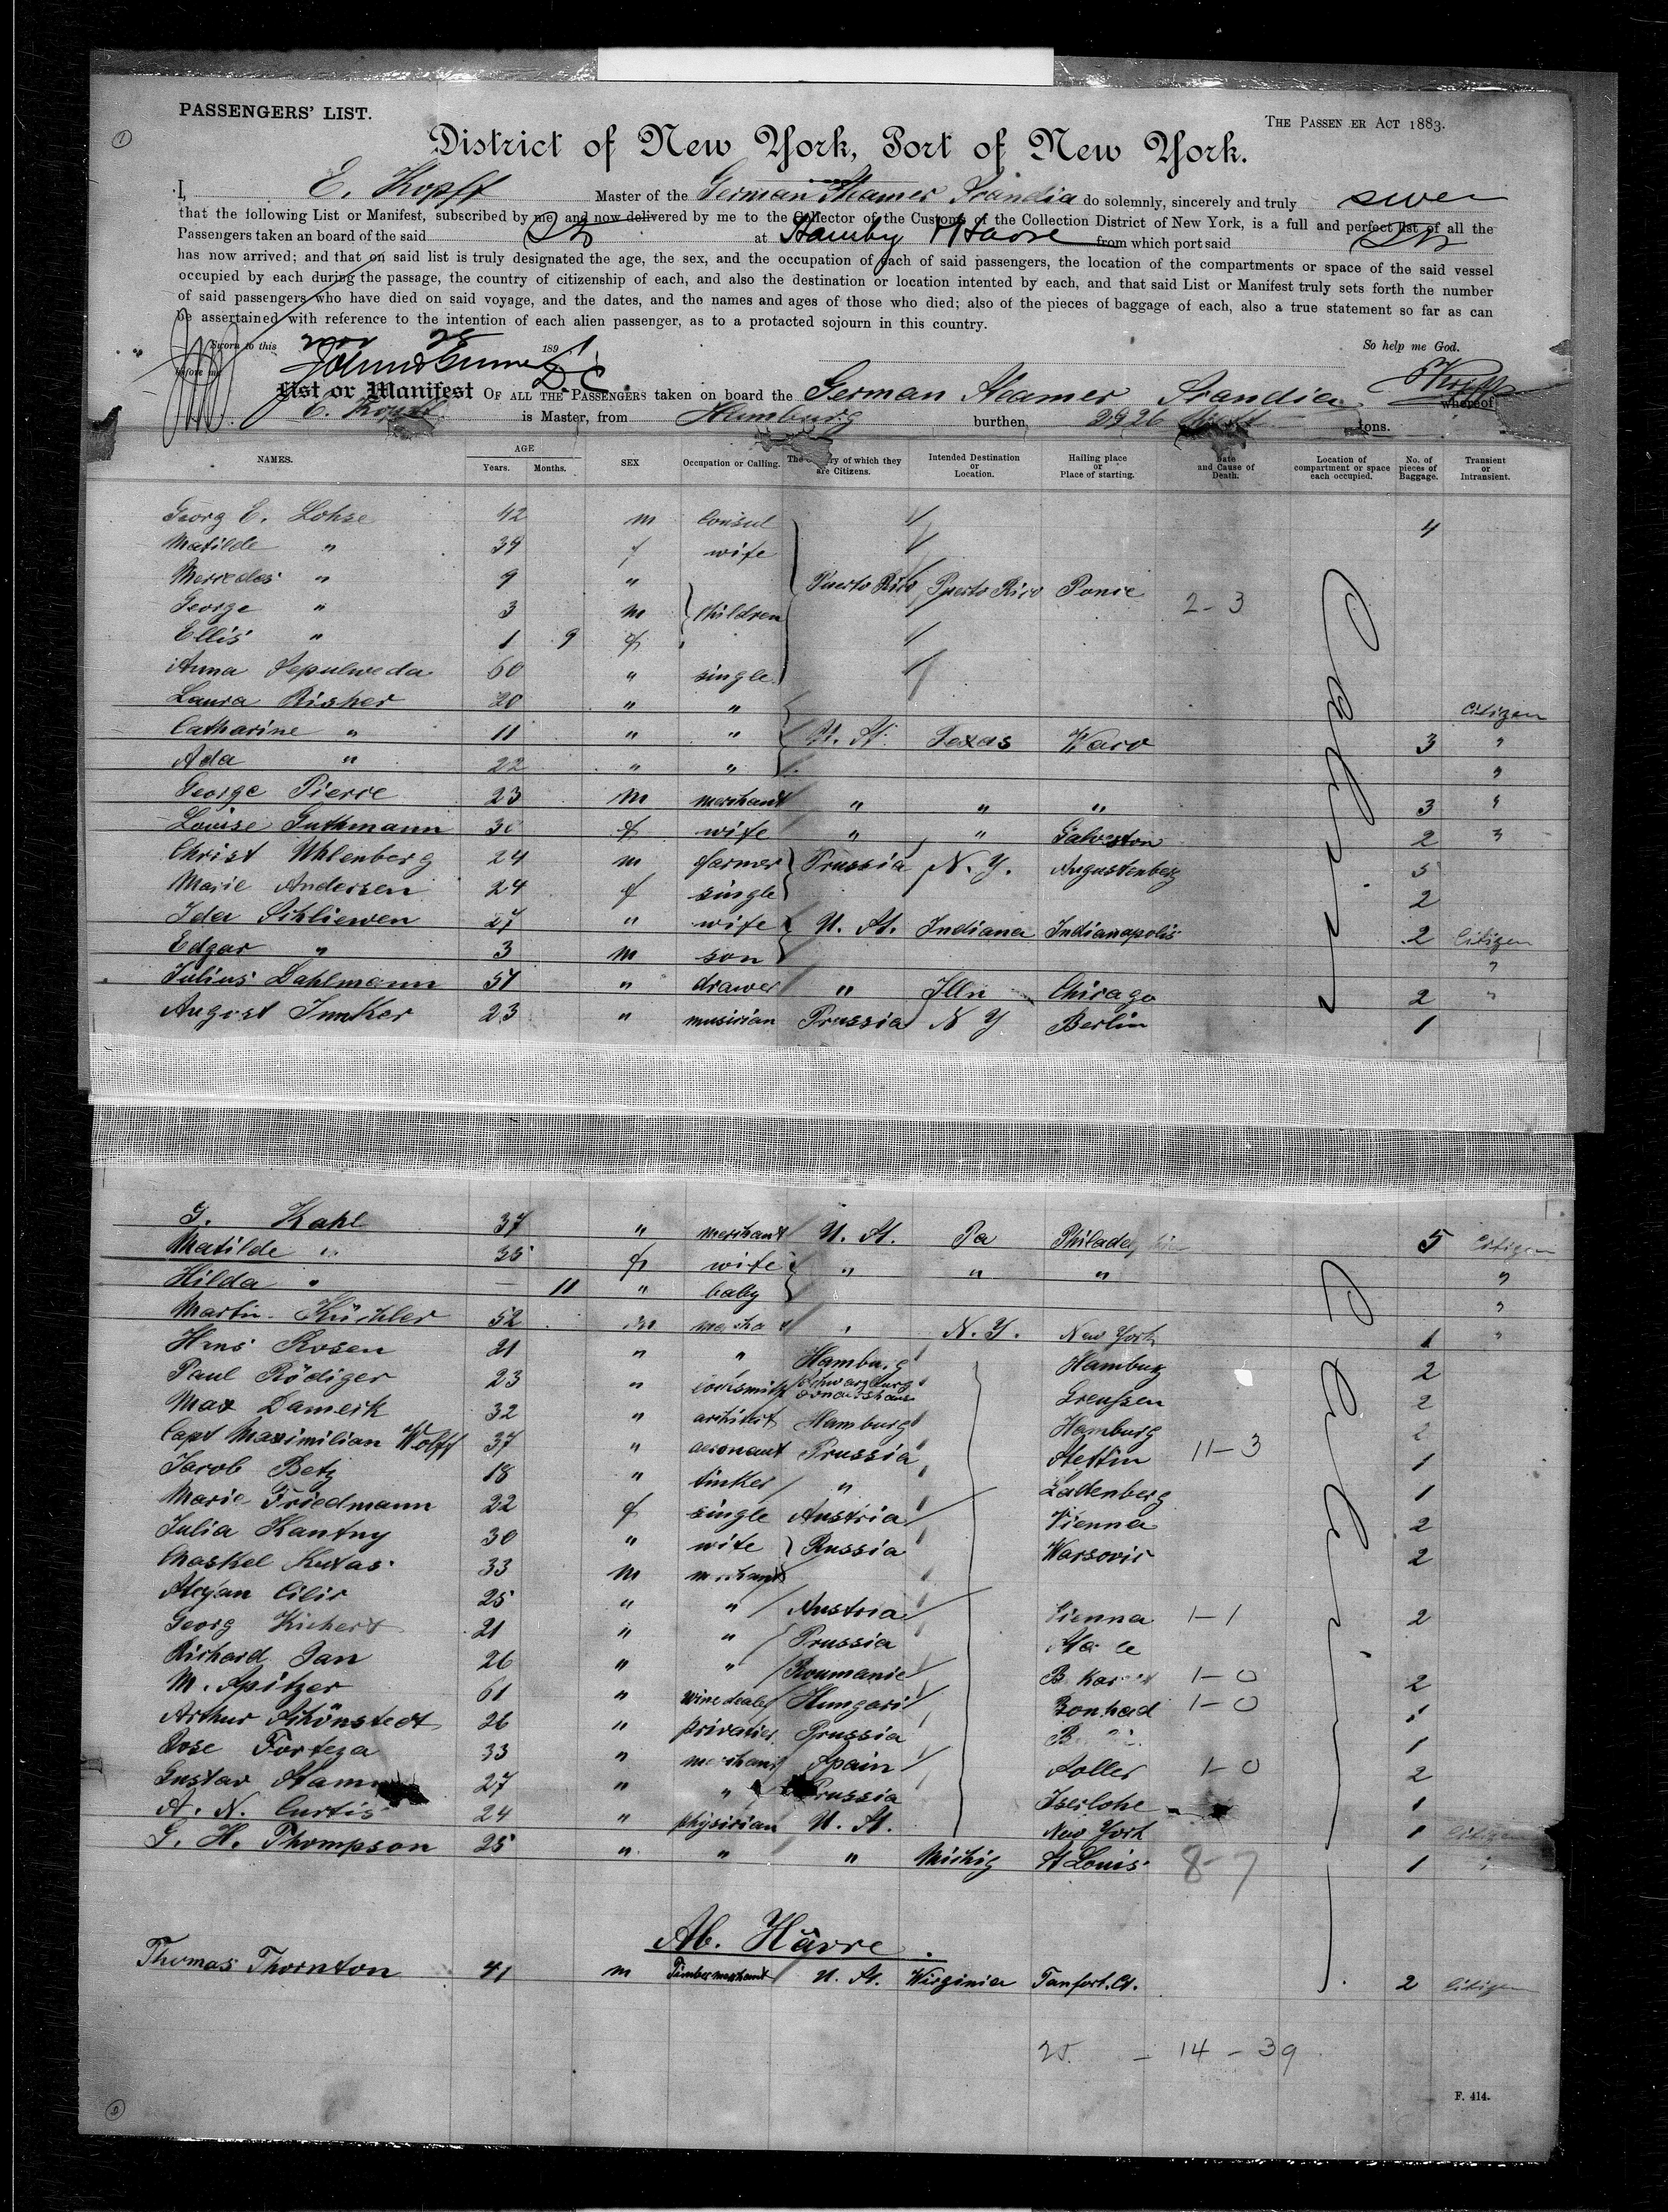 PASSENGERS' LIST.
THE PASSEN ER ACT 1883.
1
District of New York, Port of New York.
I, E. Kopff Master of the German Steamer Scandia do solemnly, sincerely and truly swear
that the following List or Manifest, subscribed by me, and now delivered by me to the Collector of the Customs of the Collection District of New York, is a full and perfect list of all the
Passengers taken on board of the said Str at Hamby Havre from which port said Str
has now arrived; and that on said list is truly designated the age, the sex, and the occupation of each of said passengers, the location of the compartments or space of the said vessel
occupied by each during the passage, the country of citizenship of each, and also the destination or location intented by each, and that said List or Manifest truly sets forth the number
of said passengers who have died on said voyage, and the dates, and the names and ages of those who died; also of the pieces of baggage of each, also a true statement so far as can
be assertained with reference to the intention of each alien passenger, as to a protacted sojourn in this country.
Sworn to this Nov 28 1891 So help me God.
before me
D. C.
List or Manifest OF ALL THE PASSENGERS taken on board the German Steamer Scandia whereof
E. Kopff is Master, from Hamburg burthen 2926 tons.
NAMES. AGE Years. Months. SEX Occupation or Calling. The ry of which they are Citizens. Intended Destination or Location. Hailing place or Place of starting. Date and Cause of Death. Location of compartment or space each occupied. No. of pieces of Baggage. Transient or Intransient.
Georg E. Lohse 42 m Consul 4
Matilde " 39 f wife
Mercedes " 9 " Puerto Rico Puerto Rico Ponce
George " 3 m children 2-3
Ellis " 1 9 f
Anna Sepulweda 60 " single
Laura Risher 20 " " Citizen
Catharine " 11 " " U. St. Texas Waco 3 "
Ada " 22 " " "
George Pierre 23 m merchant " " " 3 "
Louise Guthmann 30 f wife " " Galveston 2 "
Christ Uhlenberg 24 m farmer Prussia N. Y. Augustenberg 5
Marie Andersen 24 f single 2
Ida Schliewen 27 " wife U. St. Indiana Indianapolis 2 Citizen
Edgar " 3 m son "
Julius Dahlmann 51 " drawer " Illn Chicago 2 "
August Junker 23 " musician Prussia N Y Berlin 1
G. Kahl 37 " merchant U. St. Pa Philade 5 Citizen
Matilde " 35 f wife " " " "
Hilda " — 11 " baby "
Martin Küchler 52 m N. Y. New York 1 "
Hns Rosen 21 " " Hamburg Hamburg 2
Paul Rödiger 23 " locksmith Schwarzburg Greußen 2
Max Damerk 32 " architect Hamburg Hamburg 2
Capt Maximilian Wolff 37 " aeronaut Prussia Stettin 11-3 1
Jacob Betz 18 " tinker " Ladenberg 1
Marie Friedmann 22 f single Austria Vienna 2
Julia Kantny 30 " wife Russia Warsovie 2
Chaskel Kutas 33 m merchant
Stejan Cilic 25 " " Austria Vienna 1-1 2
Georg Kichert 21 " " Prussia
Richard Jan 26 " " Roumanie 1-0 2
M. Spitzer 61 " winedealer Hungari Bonhad 1-0 1
Arthur Schönstedt 26 " privatier Prussia 1
Jose Forteza 33 " merchant Spain Soller 1-0 2
Gustav 27 " " Prussia Iserlohe 1
A. N. Curtis 24 " physician U. St. New York 1 Citizen
G. H. Thompson 25 " " " Michig St Louis 8-7 1 "
Ab. Hâvre.
Thomas Thornton 41 m Timbermerchant U. St. Virginia Tanfort. Ct. 2 Citizen
25. - 14 - 39
F. 414.
2